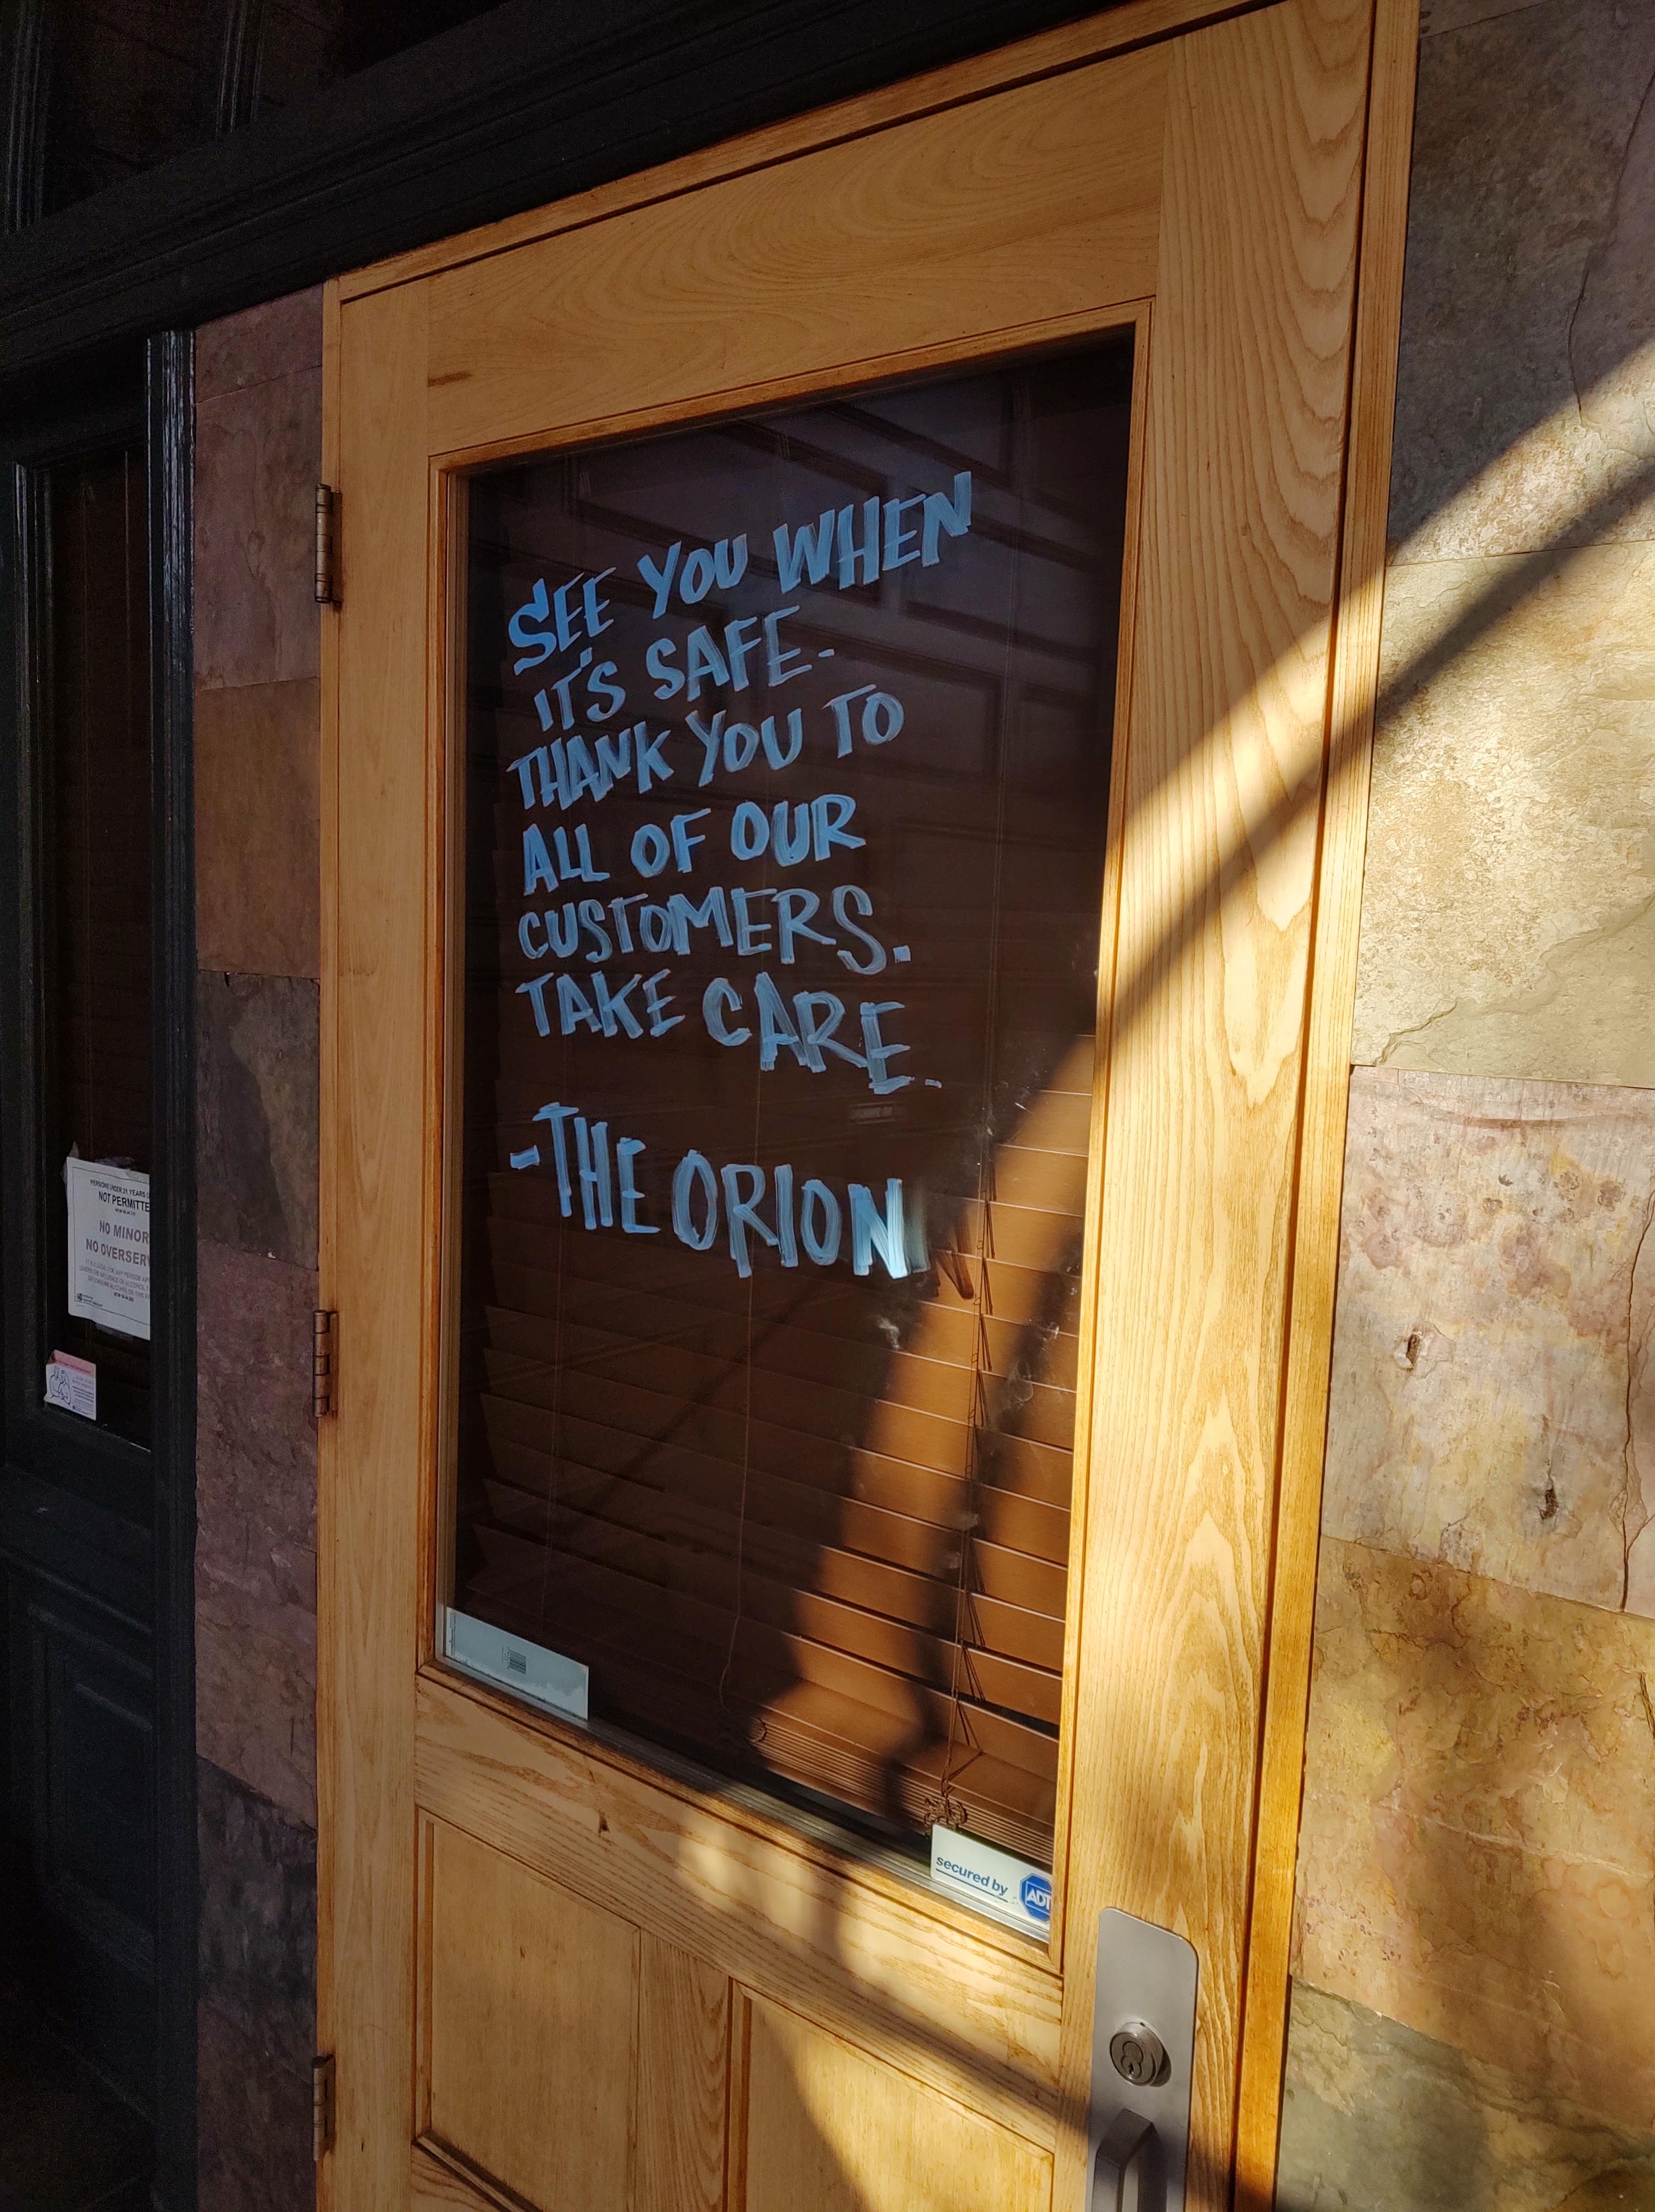 SEE YOU WHEN
IT'S SAFE-
THANK YOU TO
ALL OF OUR
CUSTOMERS.
TAKE CARE.
-THE ORION
PERSONS UNDER 21 YEARS
NOT PERMITTE
NO MINOR
NO OVERSERV
secured by
ADT